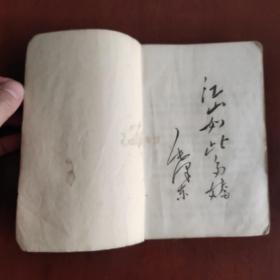 江山如此多娇
毛泽东